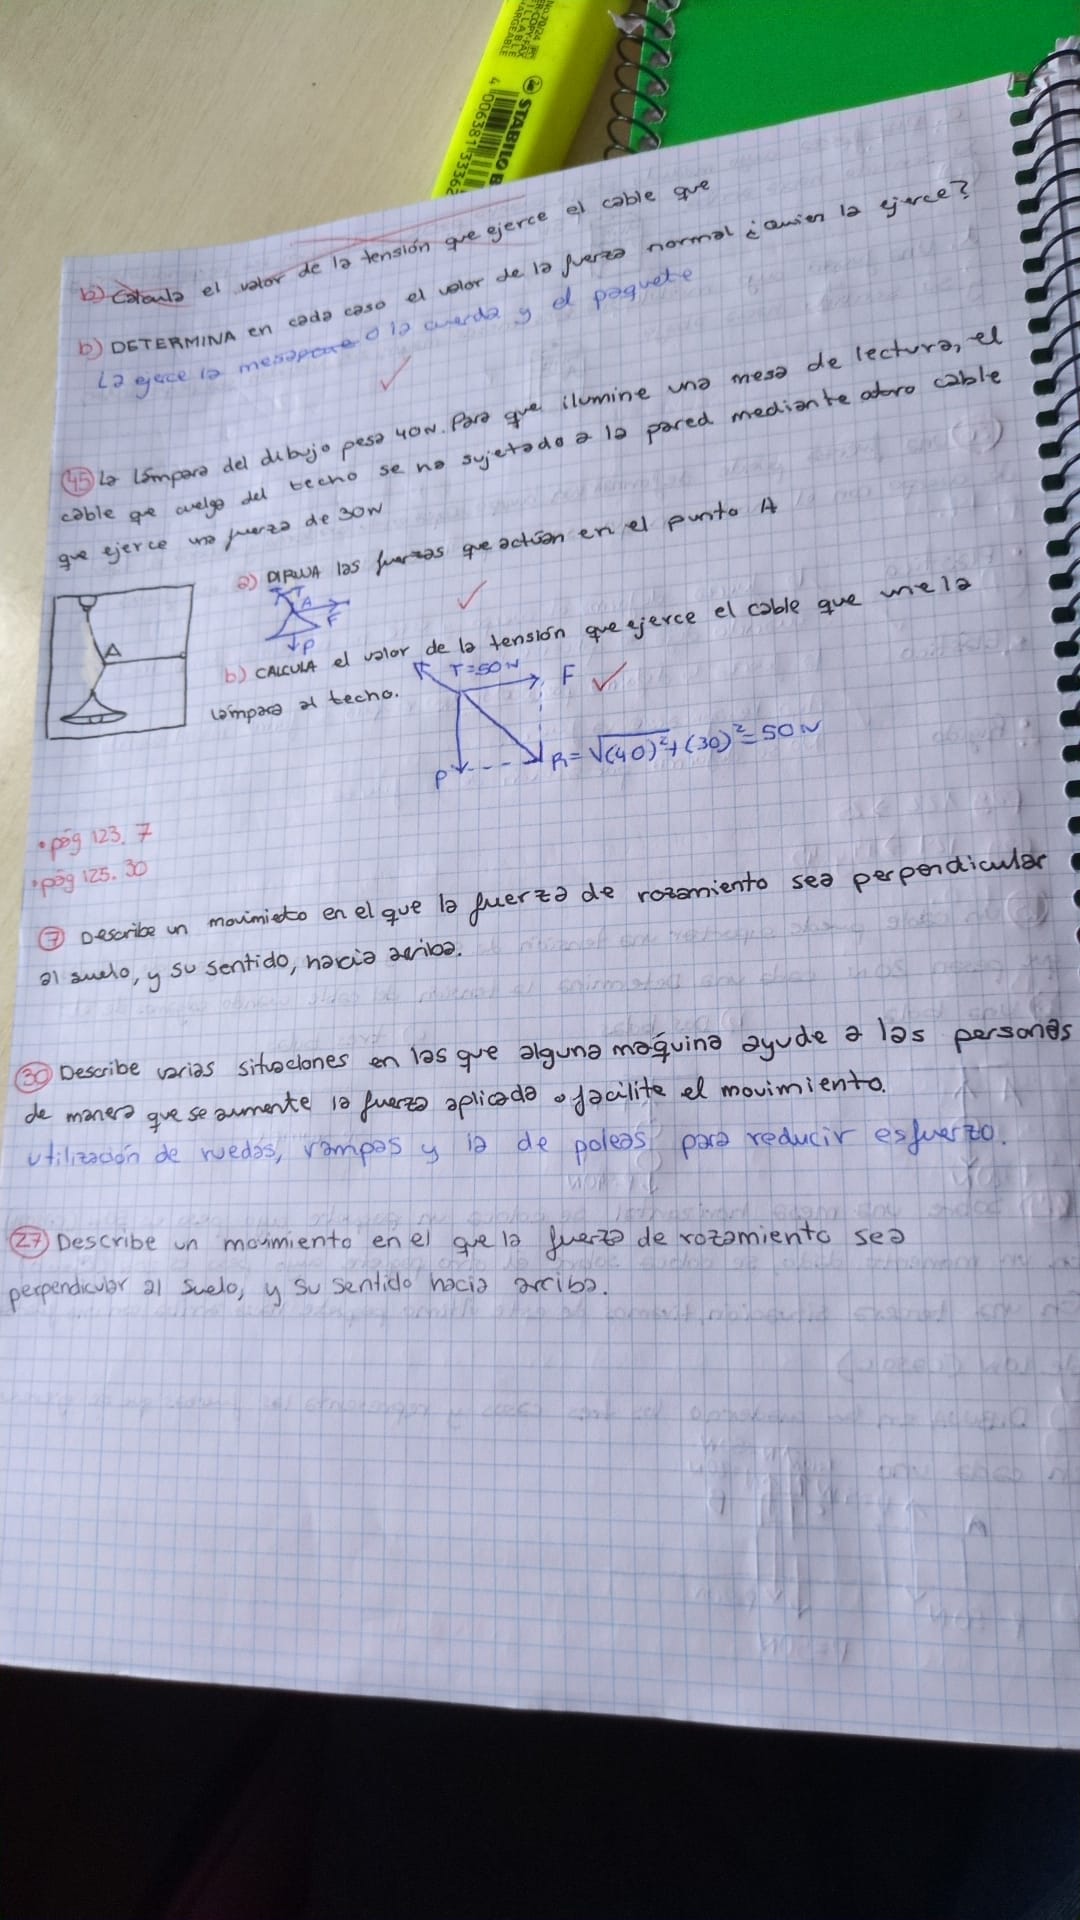 STABILO B
4 006381 3336
b) Calcula el valor de la tensión que ejerce el cable que
b) DETERMINA en cada caso el valor de la fuerza normal ¿Quien la ejerce?
La ejece la mesa o la cuerda y el paquete
45 La lámpara del dibujo pesa 40N. Para que ilumine una mesa de lectura, el
cable que cuelga del techo se ha sujetado a la pared mediante otro cable
que ejerce una fuerza de 30N
a) DIBUJA las fuerzas que actúan en el punto A
T
A
F
P
A
b) CALCULA el valor de la tensión que ejerce el cable que une la
lámpara al techo.
T=50N
F
P
R=√(40)²+(30)²=50N
• pág 123. 7
• pág 125. 30
7 Describe un movimieto en el que la fuerza de rozamiento sea perpendicular
al suelo, y su sentido, hacia arriba.
30 Describe varias situaciones en las que alguna máquina ayude a las personas
de manera que se aumente la fuerza aplicada o facilite el movimiento.
Utilización de ruedas, rampas y la de poleas para reducir esfuerzo.
27 Describe un movimiento en el que la fuerza de rozamiento sea
perpendicular al suelo, y su sentido hacia arriba.